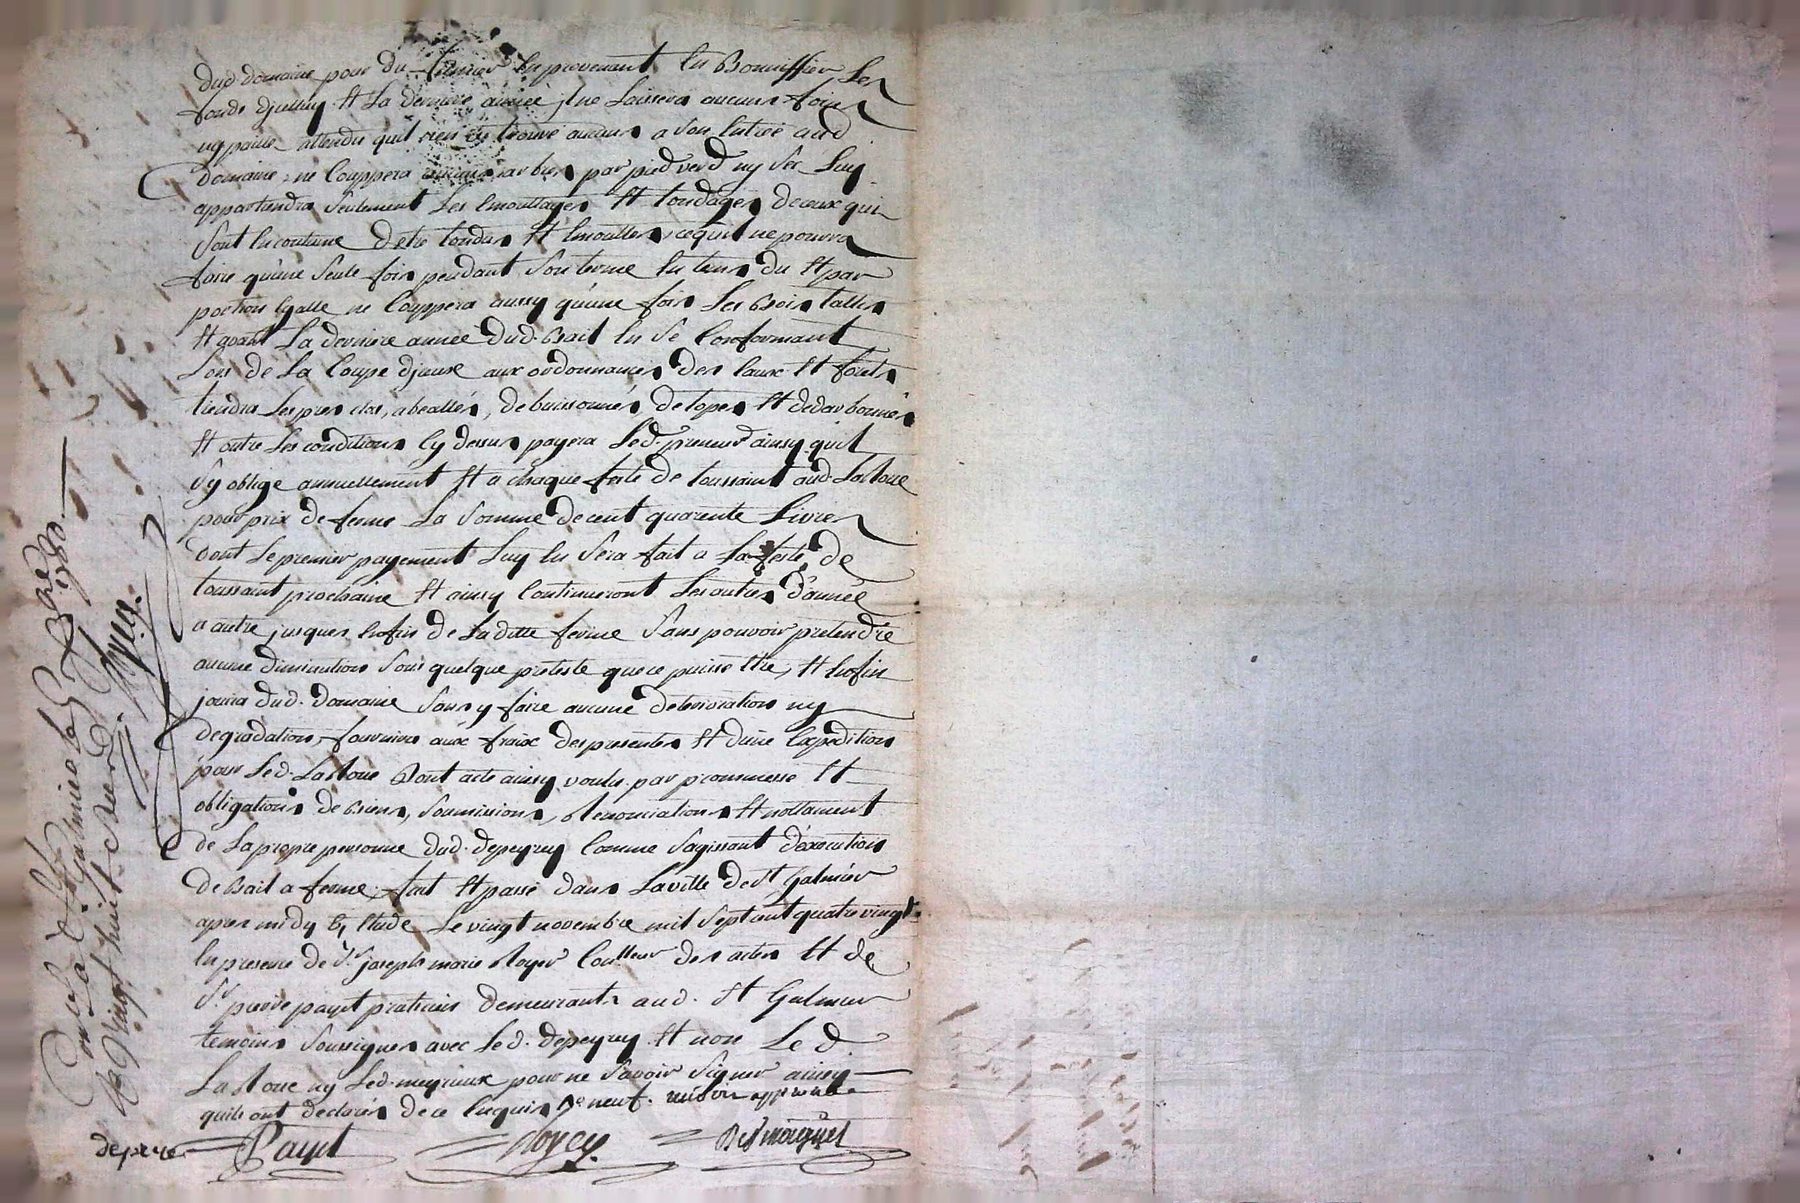 dud domaine pour du fumier en provenant en Bonniffier Les
fonds djceluy Et La derniere année jl ne Laissera aucuns foins
ny paille attendu quil nen a trouvé aucuns a son Entrée aud
domaine, ne Couppera aucuns arbres par pied verd ny sec Luy
appartiendra seulement Les Emouttages Et tondages de ceux qui
sont En coutume d'etre tondus Et Emouttés, ce quil ne pourra
faire qu'une seule fois pendant son terme En tems du Et par
portion Egalle ne Couppera aussy qu'une fois Les Bois taillis
Et avant La derniere année dud. Bail En se Conformant
Lors de La Coupe djceux aux ordonnances des Eaux Et forets
tiendra Les pres clos, abeallés, debuissonnés, detopés Et dedarbonnés
Et outre Les conditions Cy dessus payera Led. preneur ainsy quil
s'y oblige annuellement Et a chaque feste de toussaint aud. Lastoue
pour prix de ferme La somme de cent quarente Livres
dont Le premier payement Luy En sera fait a La feste de
toussaint prochaine Et ainsy Continueront Les autres d'année
a autre jusques Enfin de La ditte ferme sans pouvoir pretendre
aucune diminution sous quelque preteste que ce puisse Etre, Et Enfin
jouira dud. domaine sans y faire aucune deterioration ny
degradation, fournira aux fraix des presentes Et d'une Expedition
pour Led. Lastoue Dont acte ainsy voulu par promesse Et
obligations de Biens, soumissions, Renonciations Et nottament
de La propre personne dud. depeyrey Comme s'agissant d'execution
de Bail a ferme, fait Et passé dans La ville de St Galmier
apres midy Etude Le vingt novembre mil sept cent quatre vingt
En presence de Sr. joseph marie Royer Controlleur des actes Et de
Sr pierre payet praticien demeurants aud. St Galmier
temoins soussignes avec Led. depeyrey Et non Led.
Lastoue ny Led. meyrieux pour ne savoir signer ainsy
quils ont declarés de ce Enquis
depeyre Payet Royer Desmaignet
Con.lé a St. Galmier Le 9bre 1780
Vingt huit sols
Royer.